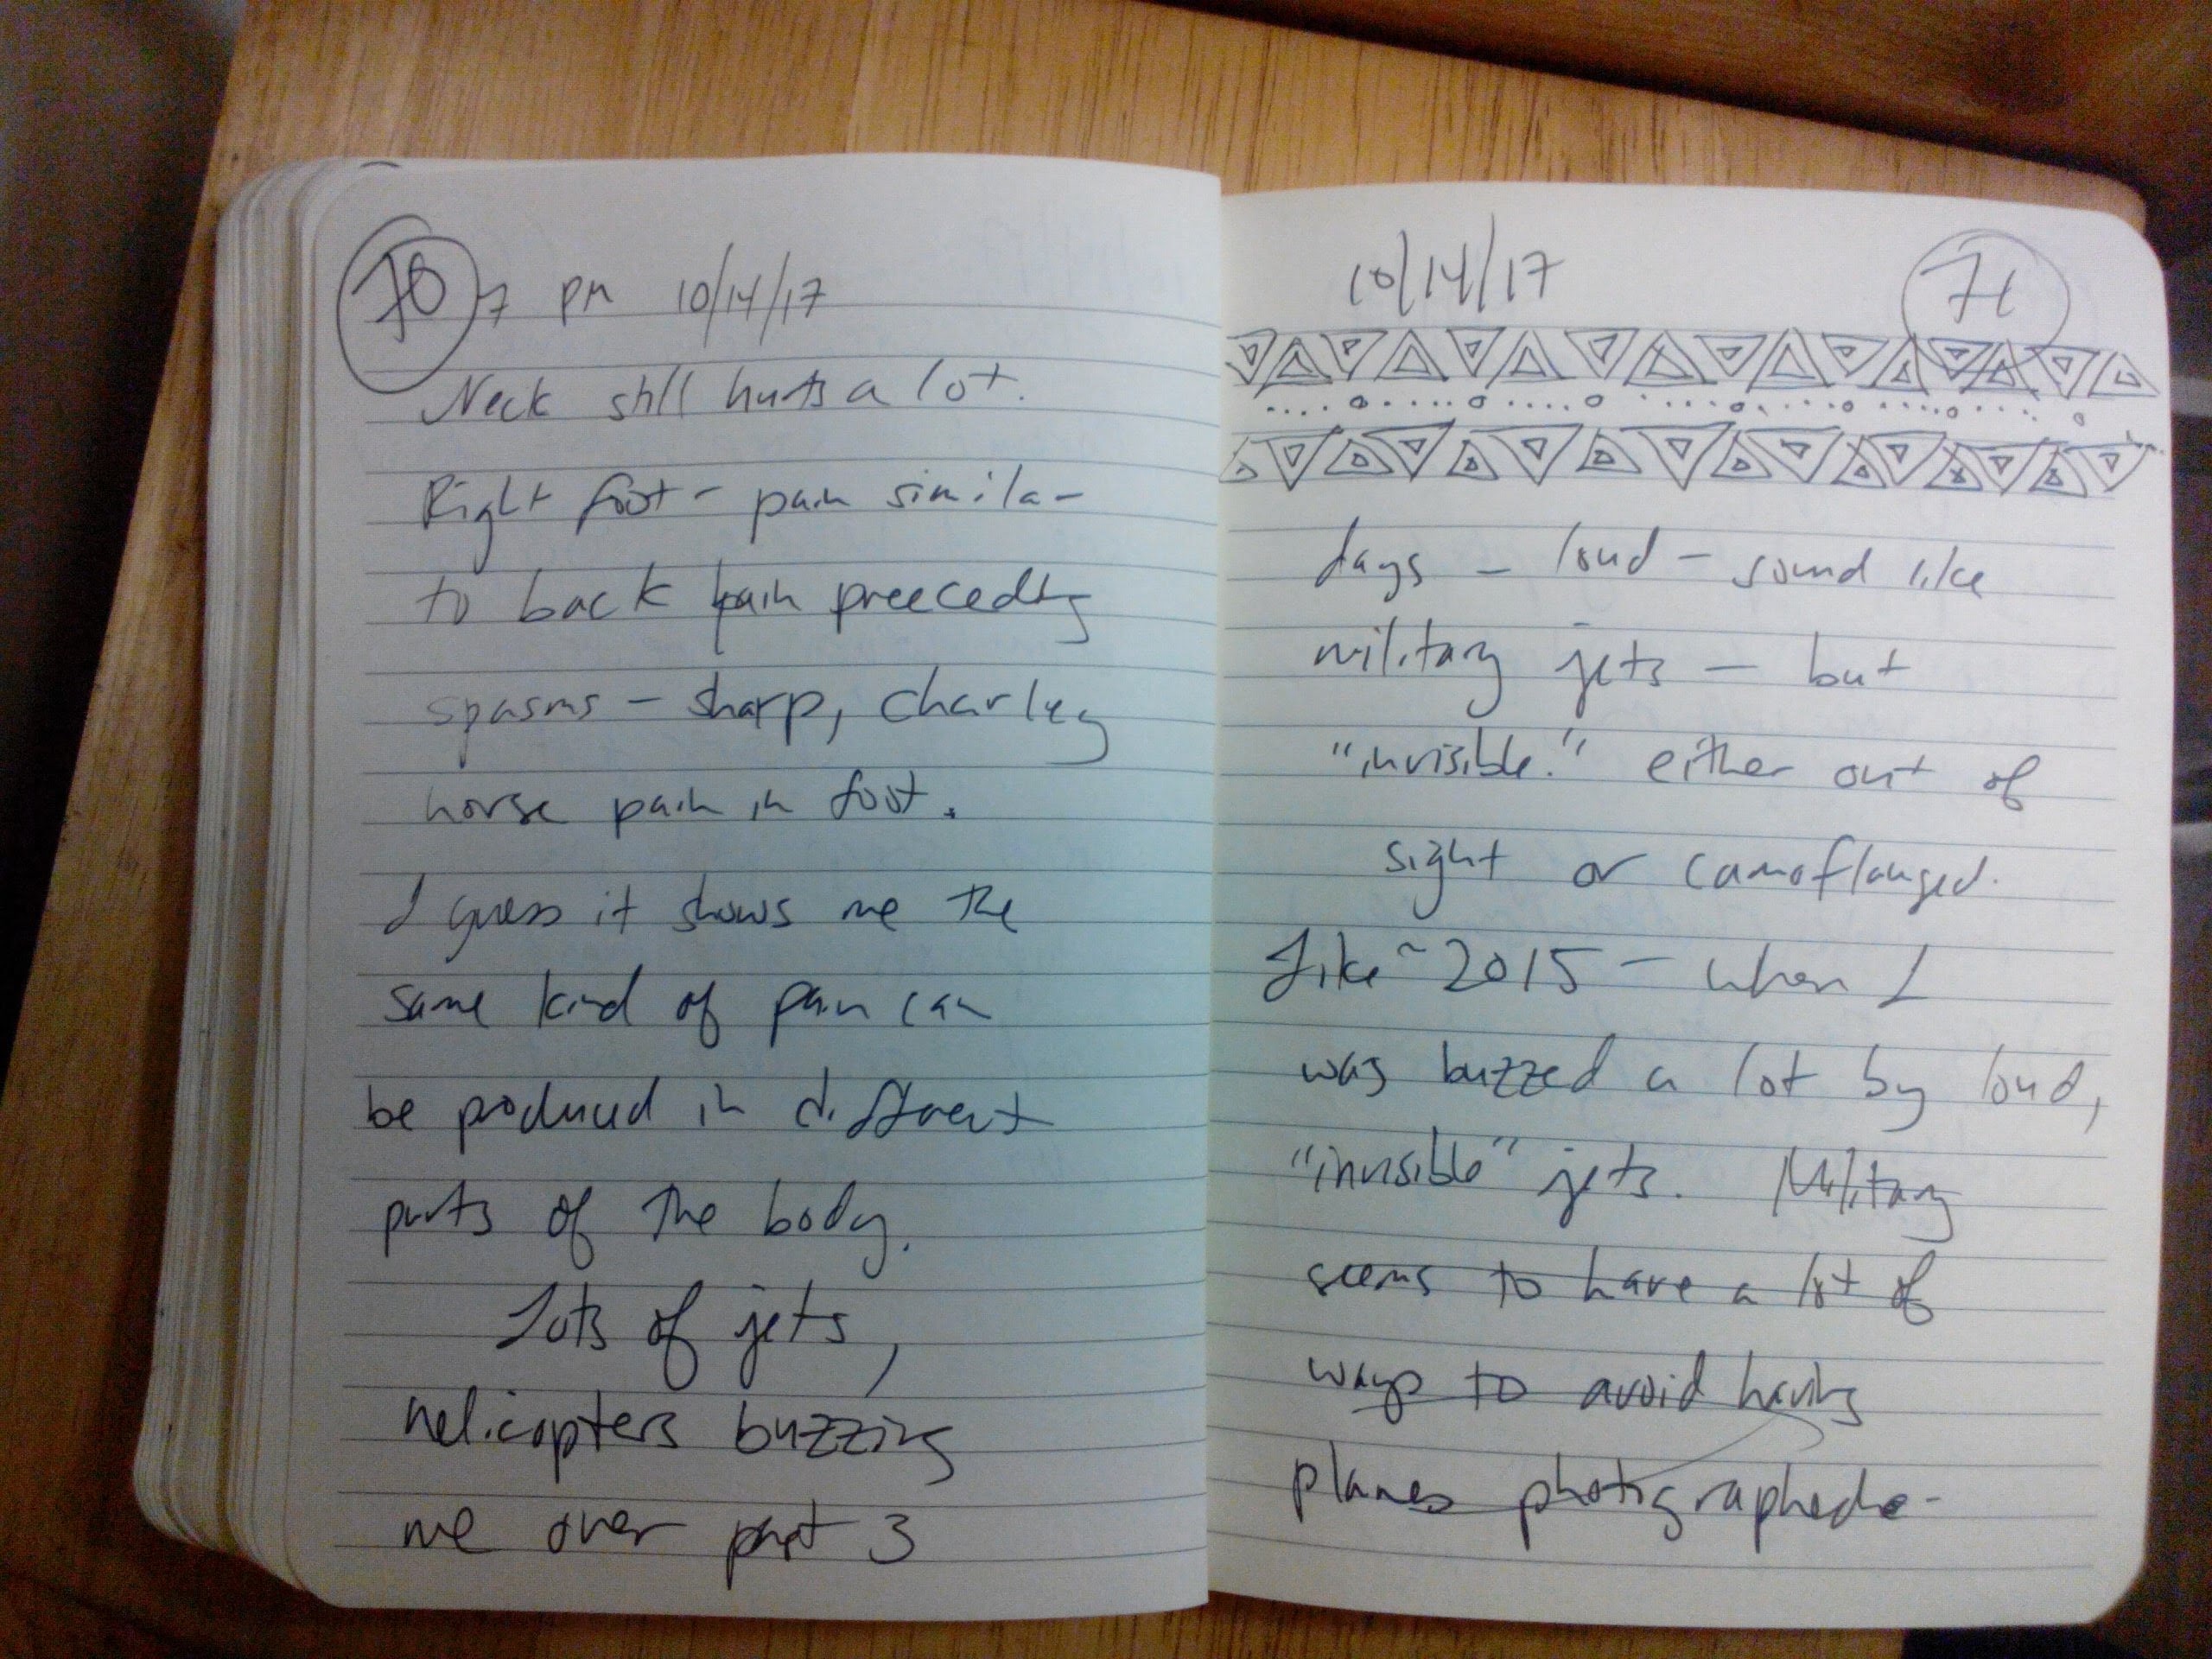 70 7 pm 10/14/17
Neck still hurts a lot.
Right foot - pain similar
to back pain preeceding
spasms - sharp, charley
horse pain in foot.
I guess it shows me the
same kind of pain can
be produced in different
parts of the body.
Lots of jets,
helicopters buzzing
me over past 3
10/14/17 71
days - loud - sound like
military jets - but
"invisible." either out of
sight or camoflauged.
Like ~2015 - when I
was buzzed a lot by loud,
"invisible" jets. Military
seems to have a lot of
ways to avoid having
planes photographed.